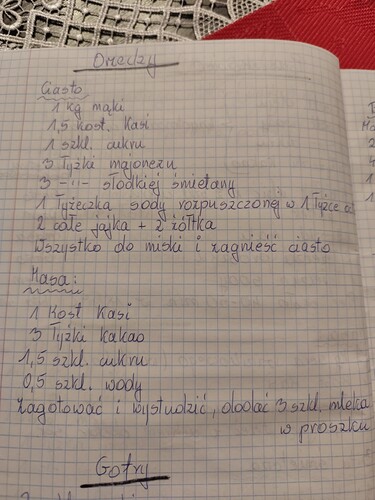 Orzeszki
Ciasto
1 kg mąki
1,5 kost. Kasi
1 szkl. cukru
3 łyżki majonezu
3 -"- słodkiej śmietany
1 łyżeczka sody rozpuszczonej w 1 łyżce
2 całe jajka + 2 żółtka
Wszystko do miski i zagnieść ciasto
Masa:
1 kost Kasi
3 łyżki kakao
1,5 szkl. cukru
0,5 szkl. wody
zagotować i wystudzić, dodać 3 szkl. mleka
w proszku
Gofry